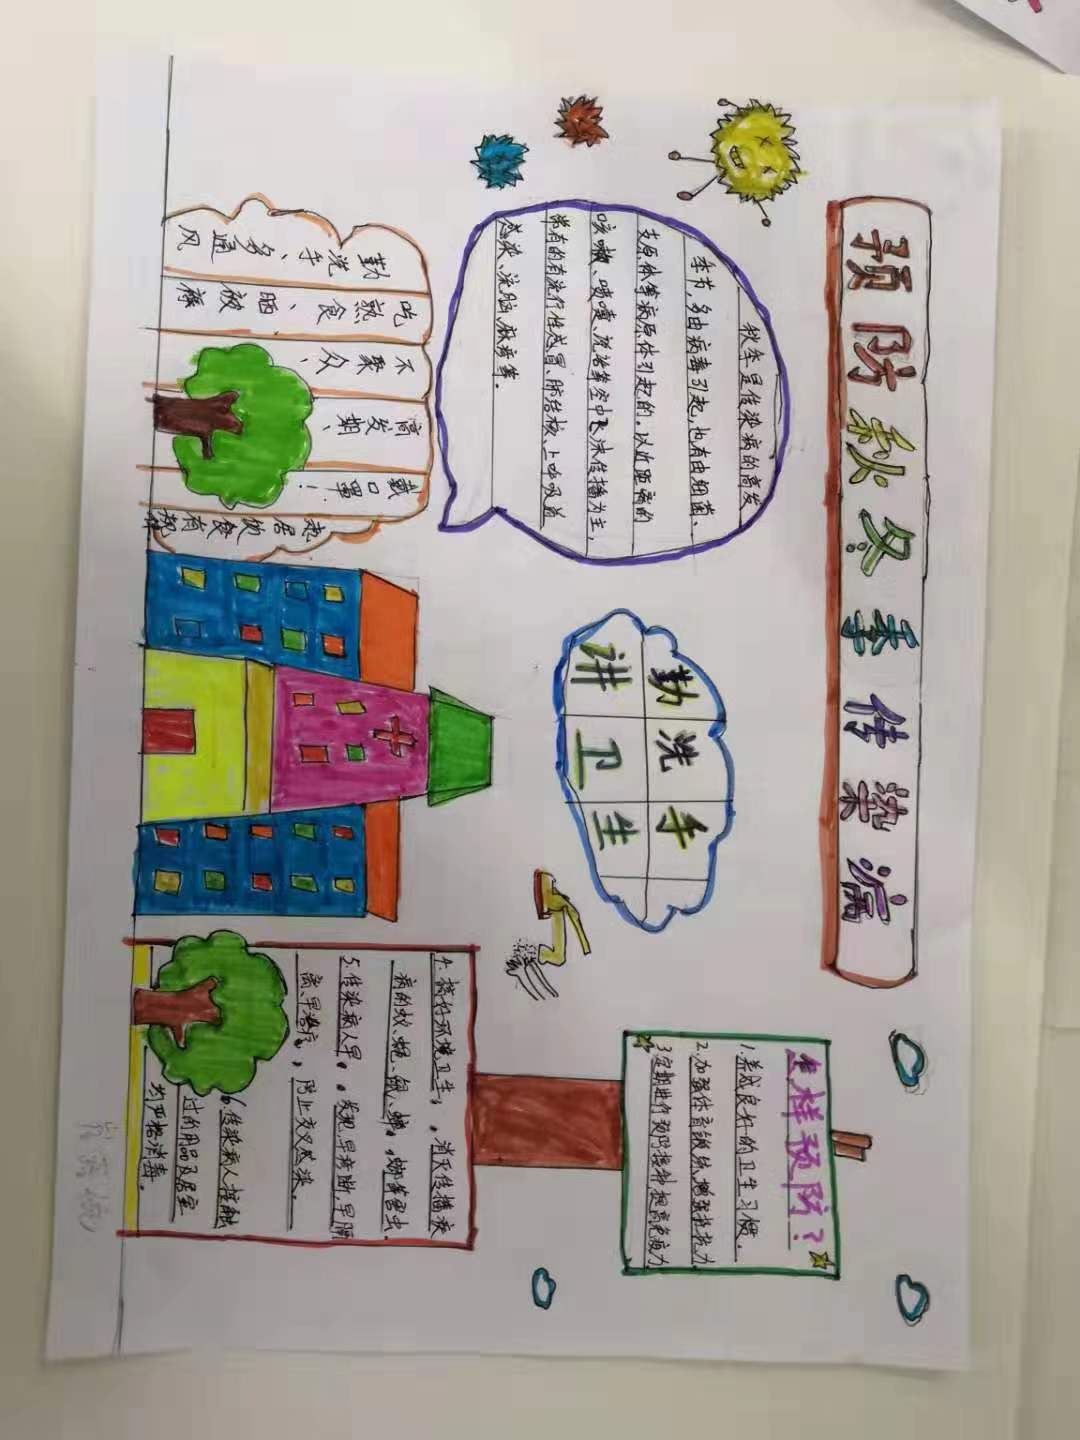 预防秋冬季传染病
秋季是传染病的高发
季节,多由病毒引起,也有由细菌、
支原体等病原体引起的。以近距离的
咳嗽、喷嚏、说话等空中飞沫传播为主,
常有的有流行性感冒、肺结核、上呼吸道
感染、流脑、麻疹等。
勤洗手
讲卫生
怎样预防?
1.养成良好的卫生习惯。
2.加强体育锻炼,增强抵抗力
3.定期进行预防接种提高免疫力
勤洗手、多通风
吃熟食、晒被褥
不聚众、
高发期、
戴口罩!
起居饮食有
4.搞好环境卫生,消灭传播疾
病的蚊、蝇、鼠、蟑、螂等害虫。
5.传染病人早发现,早诊断,早隔
离、早治疗,防止交叉感染。
6.传染病人接触
过的用品及居室
均严格消毒。